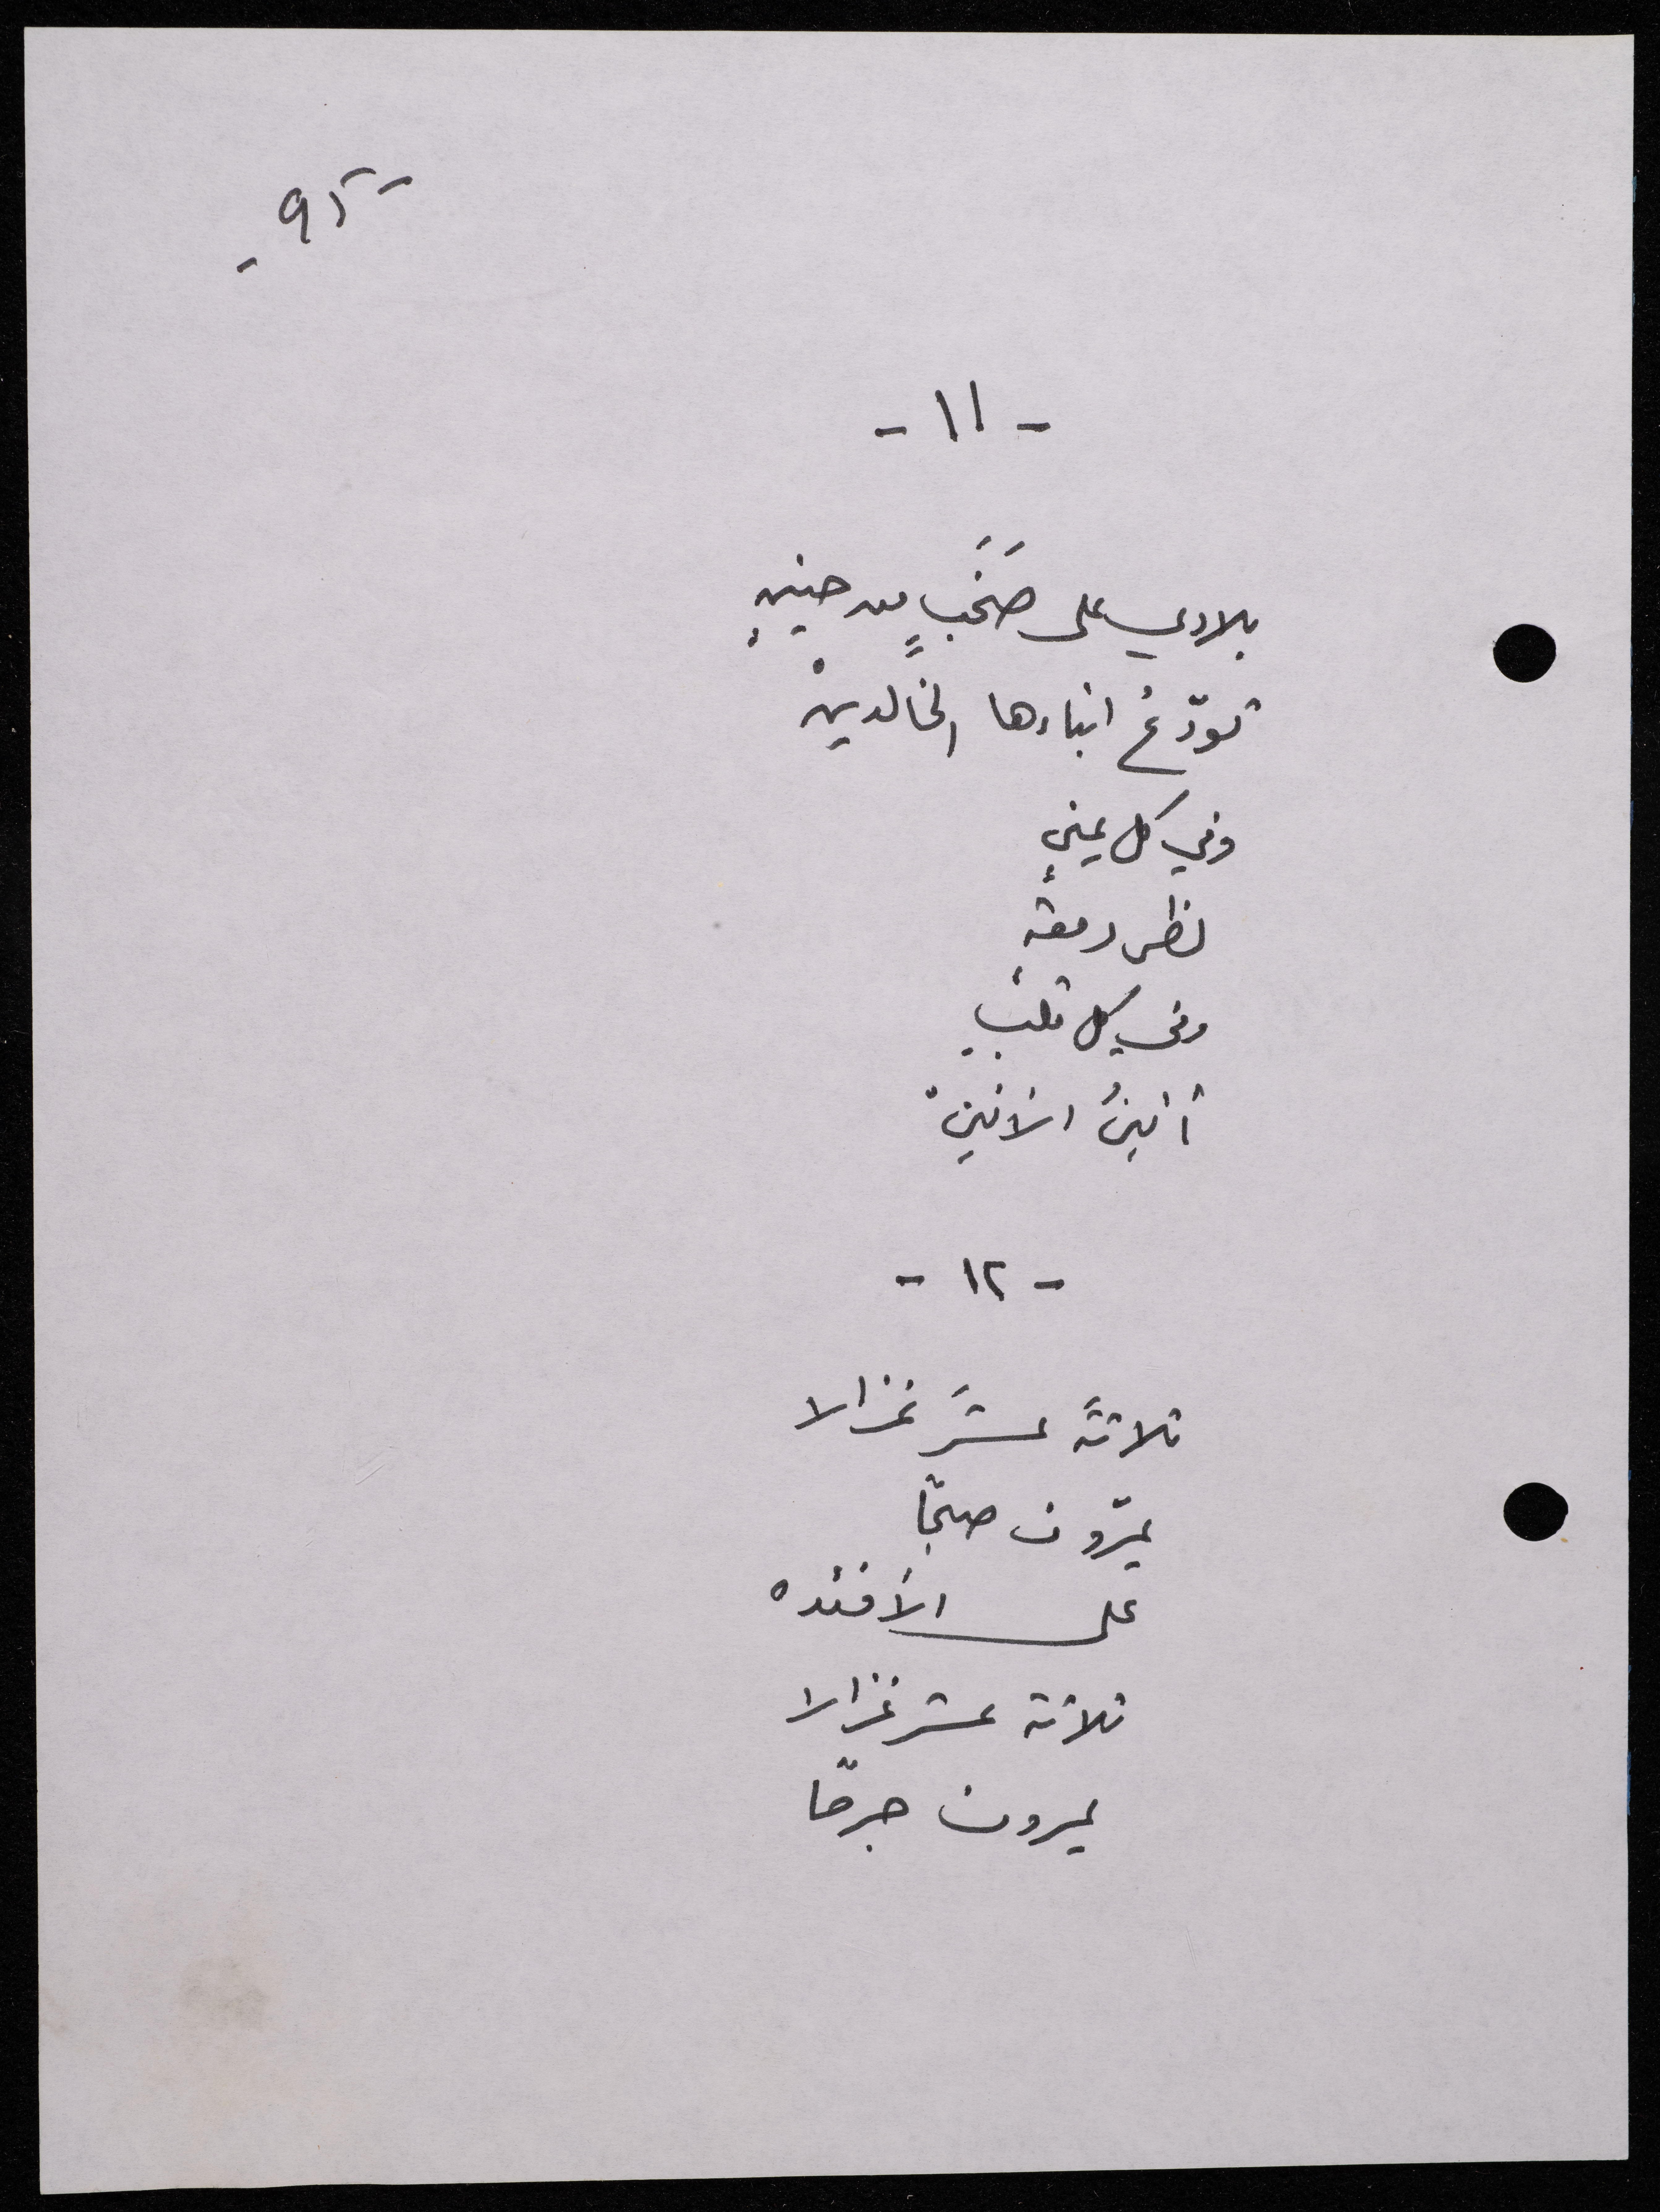 - ٩٥ -
- ١١ -
بلادي على صَخَبٍ من حنينٍ
تودّعُ ابناءها الخالدينْ
وفي كل عينٍ
تظل دمعةٍ
وفي كل قلبٍ
أنينُ الأنينْ
- ١٢ -
ثلاثةَ عشَرَ غزالا
يمرّون صبحًا
على الأفئده
ثلاثة عشر غزالا
يمرون جرحًا